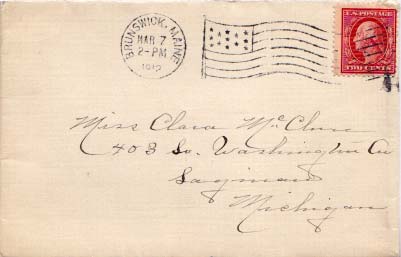 BRUNSWICK, MAINE
MAR 7
2-PM
U.S. POSTAGE
TWO CENTS
Miss Clara McClure
403 So. Washington Av
Saginaw
Michigan